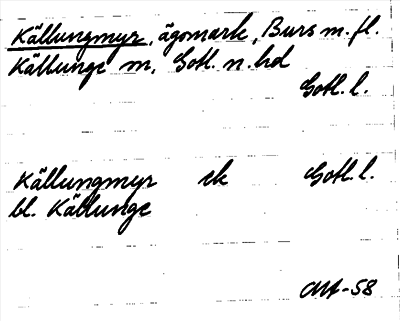 Källungmyr, ägomark, Burs m. fl.
Källunge m. Gotl. n. hd
Gotl. l.
Källungmyr ek Gotl. l.
bl. Källunge
-58